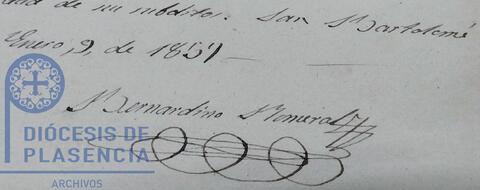 de un subdito. San Bartolomé
Enero, 9, de 1851
Bernardino Romera
DIÓCESIS DE
PLASENCIA
ARCHIVOS